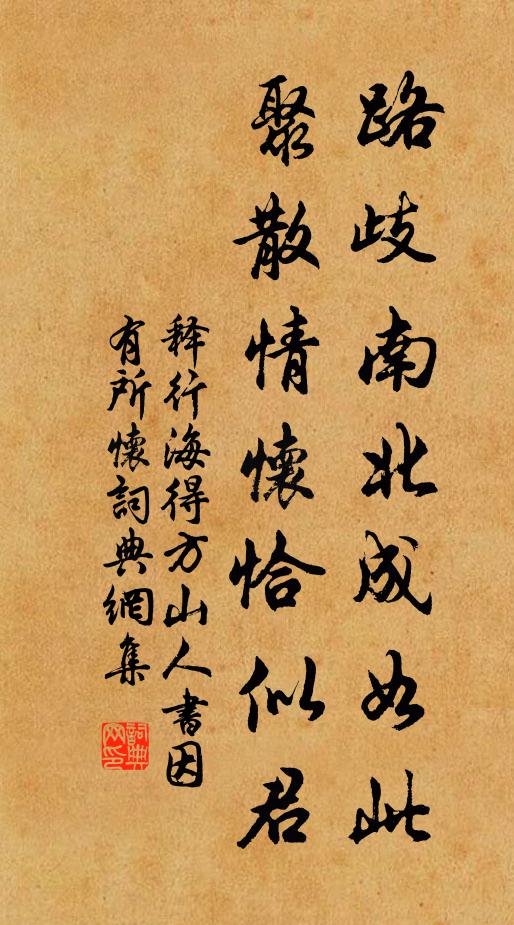 路歧南北成如此
聚散情懷恰似君
释行海得方山人書因
有所懷詞典網集
詞典网印